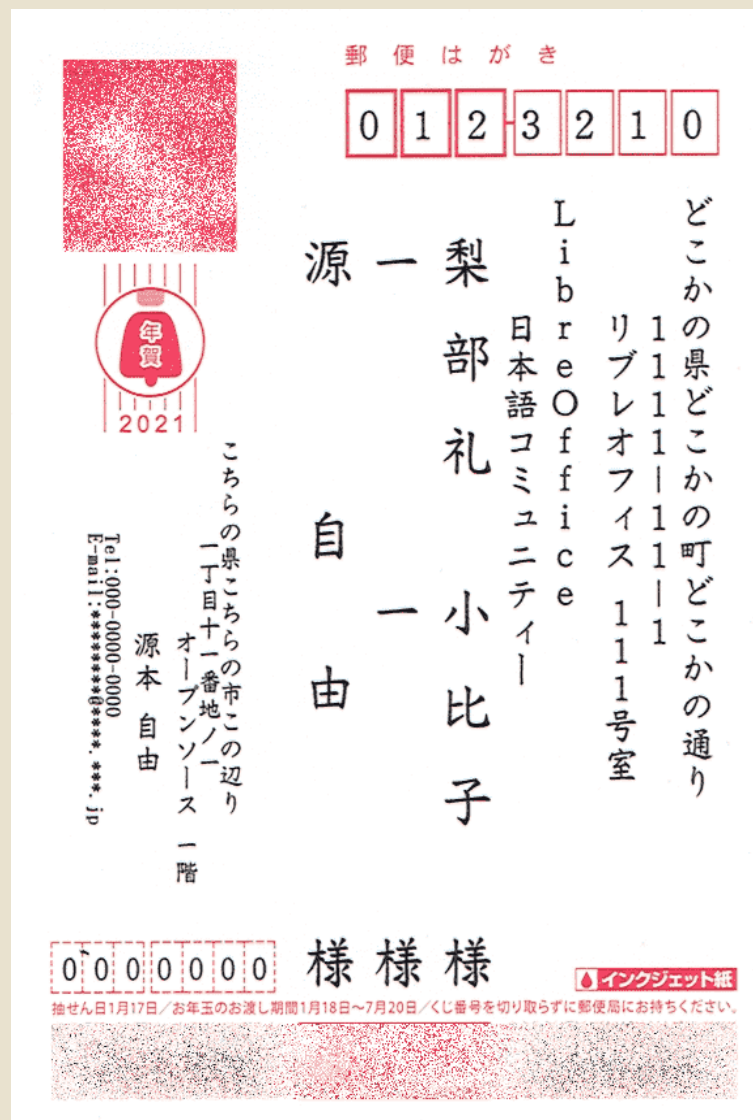 郵便はがき
0123210
どこかの県どこかの町どこかの通り
1111ー11ー1
リブレオフィス 111号室
LibreOffice
日本語コミュニティー
梨部礼 小比子 様
一 一 様
源 自由 様
年賀
2021
こちらの県こちらの市この辺り
一丁目十一番地ノ一
オープンソース 一階
源本 自由
Tel:000-0000-0000
E-mail:********@****.***.jp
0000000
インクジェット紙
抽せん日1月17日／お年玉のお渡し期間1月18日～7月20日／くじ番号を切り取らずに郵便局にお持ちください。